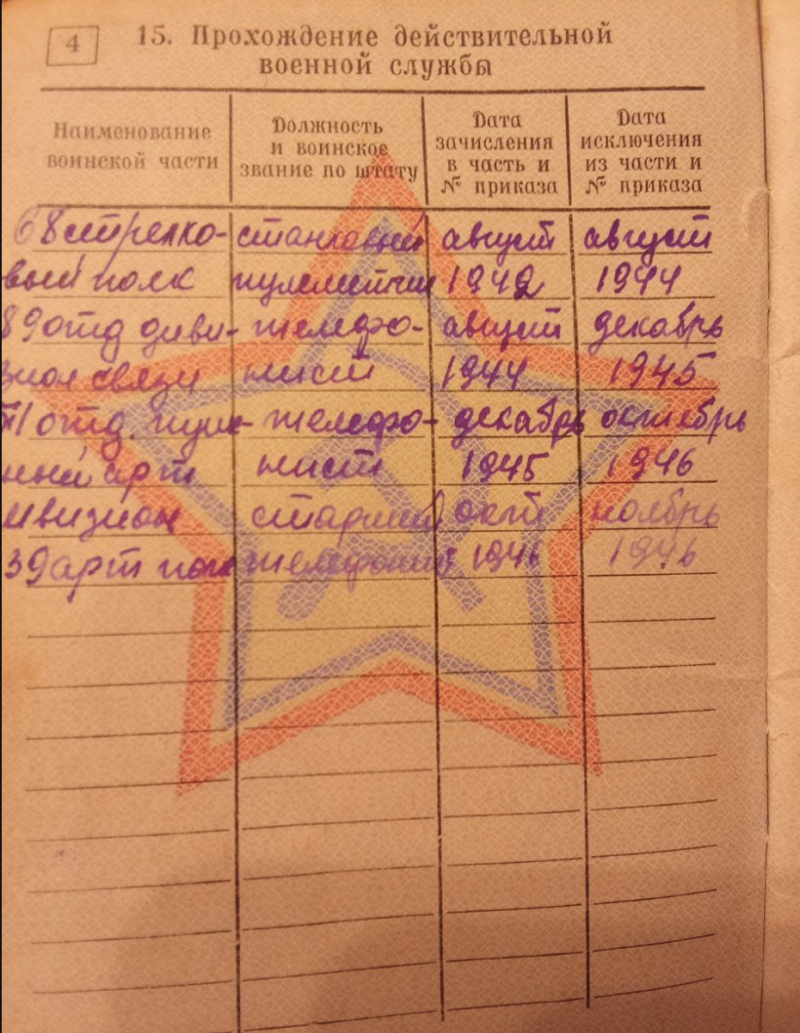 4
15. Прохождение действительной
военной службы
Наименование
воинской части
Должность
и воинское
звание по штату
Дата
зачисления
в часть и
№ приказа
Дата
исключения
из части и
№ приказа
68 стрелко- станковый август август
вый полк пулеметчик 1942 1944
89 отд диви- телефо- август декабрь
зион связи нист 1944 1945
отд. телефо- декабрь октябрь
ный арт нист 1945 1946
дивизион старший окт ноябрь
39 арт полк телефонист 1946 1946